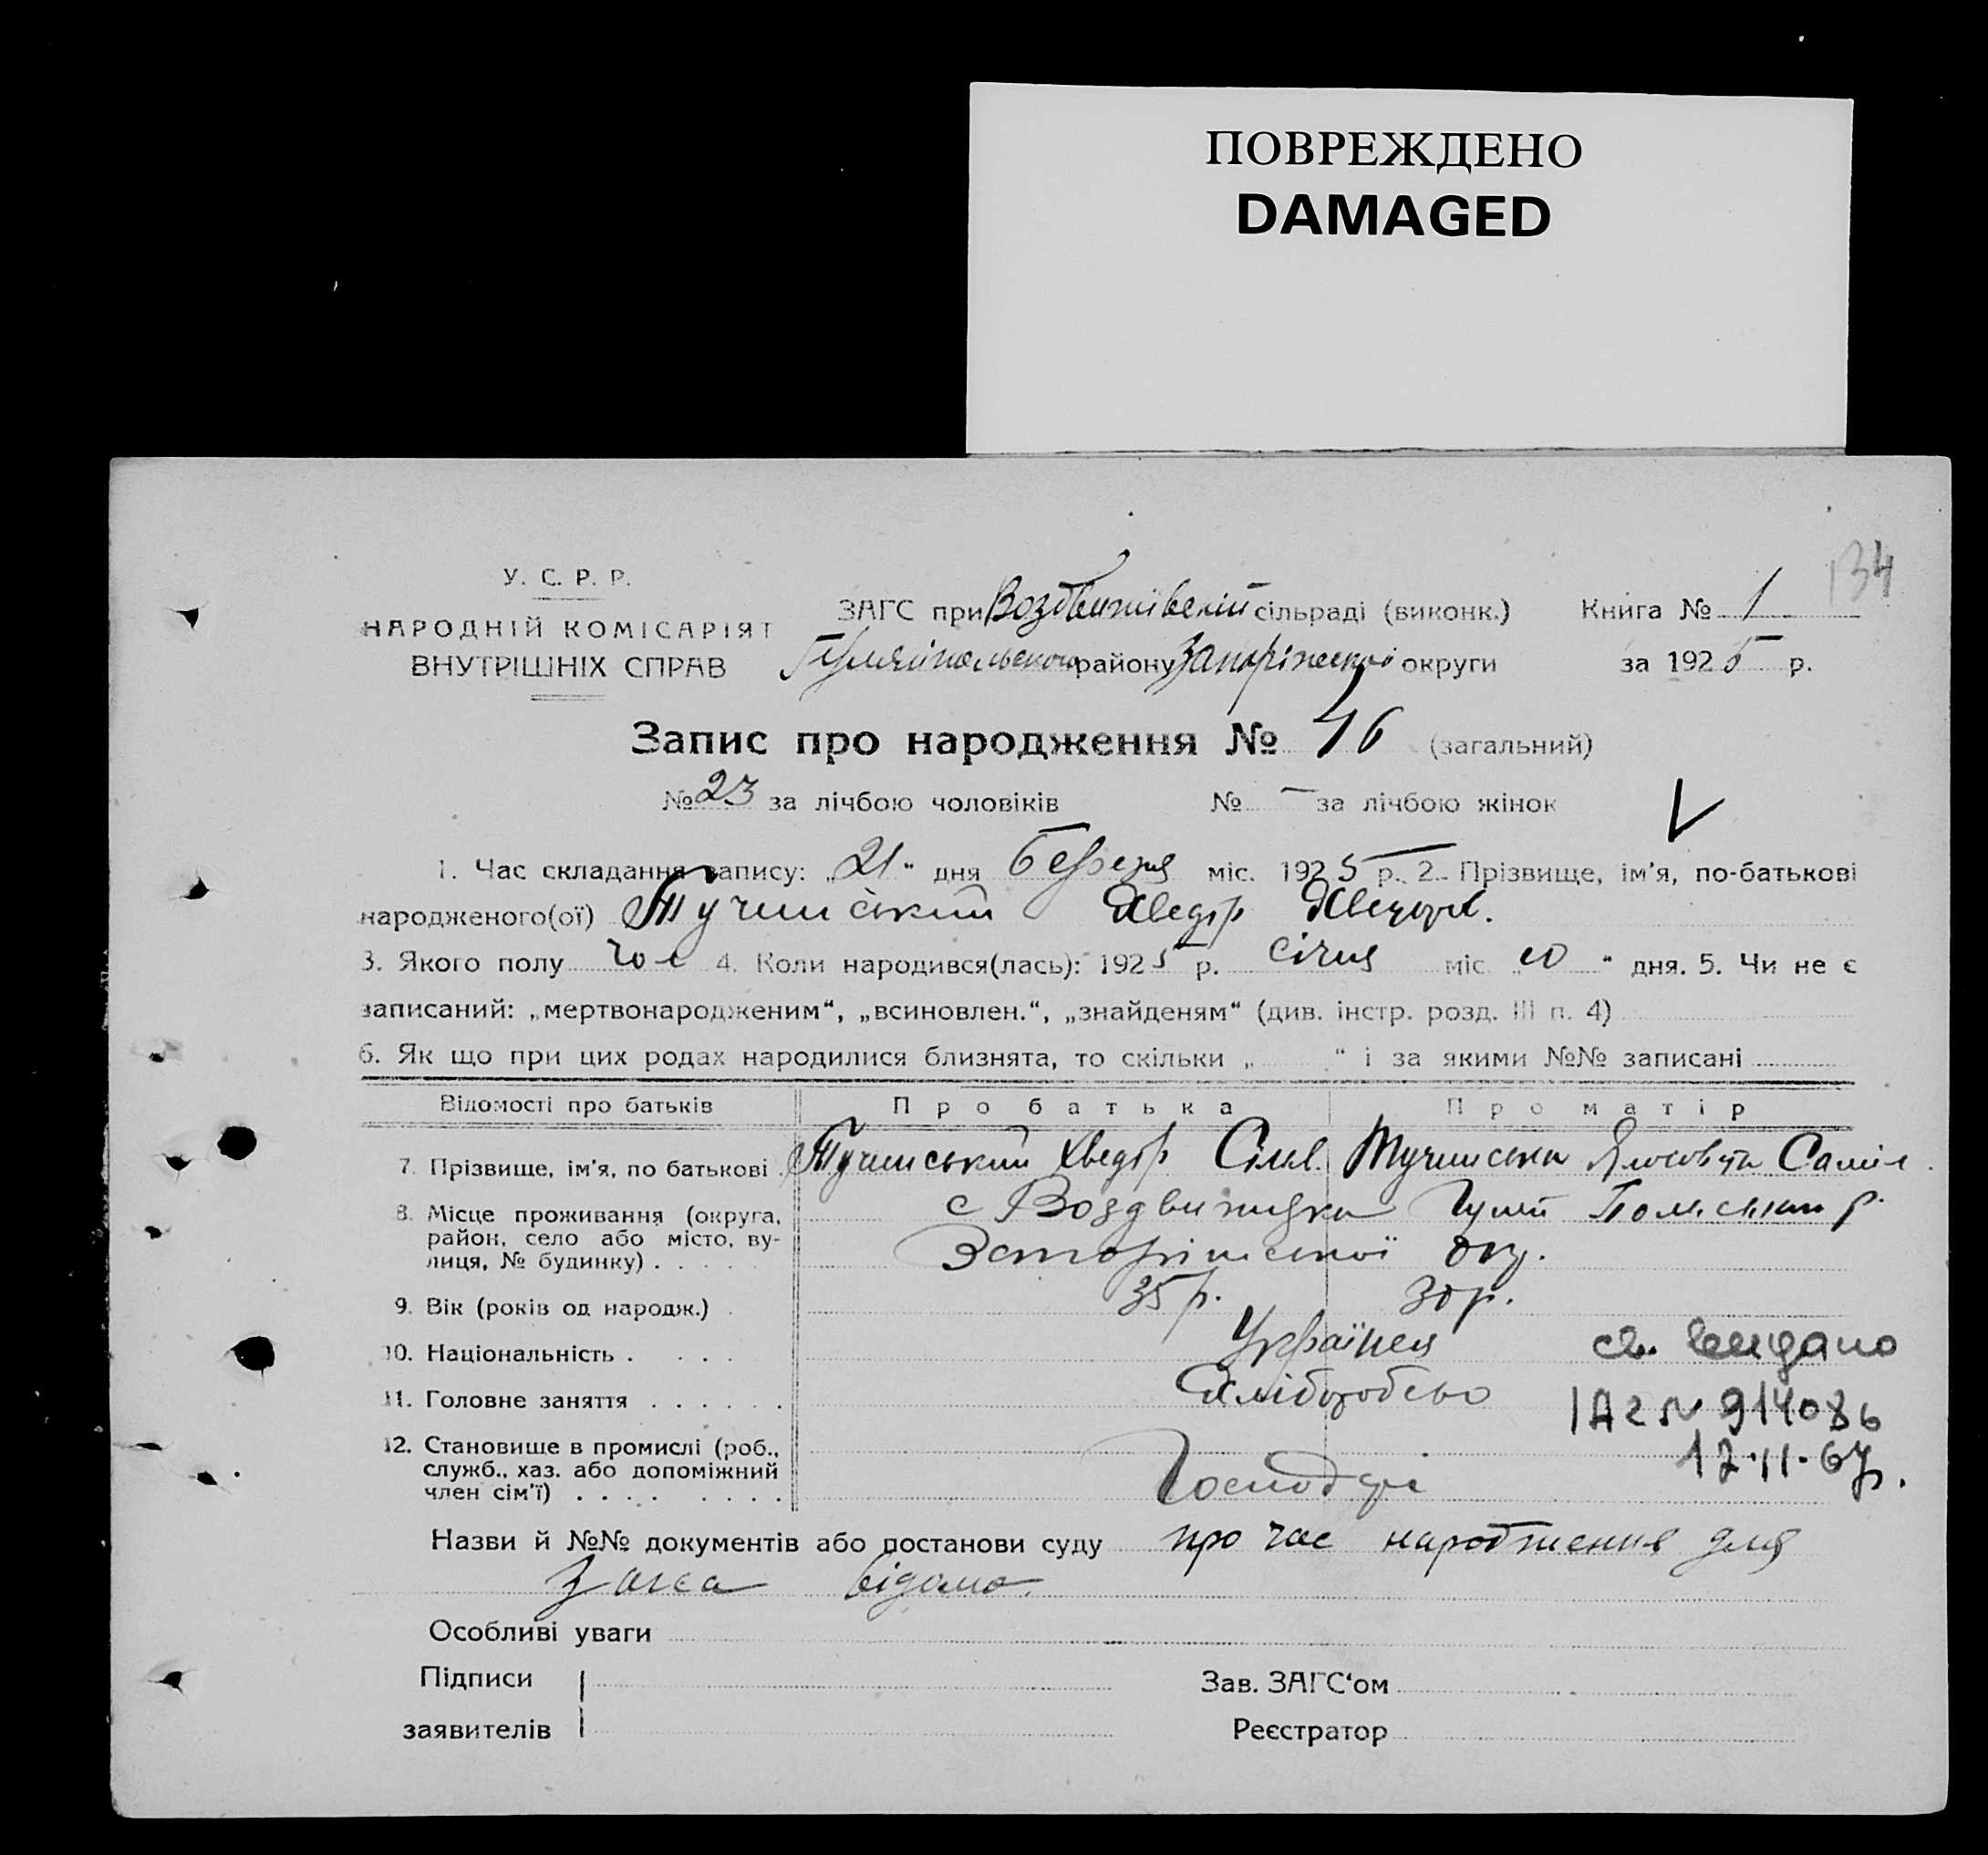 ПОВРЕЖДЕНО
DAMAGED
134
У. С. Р. Р.
НАРОДНІЙ КОМІСАРІЯТ
ВНУТРІШНІХ СПРАВ
ЗАГС при Воздвижівській сільраді (виконк.) Книга № 1
району Запоріжської округи за 1925 р.
Запис про народження № 76 (загальний)
№ 23 за лічбою чоловіків № — за лічбою жінок
1. Час складання запису: „21“ дня березня міс. 1925 р. 2. Прізвище, ім’я, по-батькові
народженого(ої) Тучинський Хведір Хведоров.
3. Якого полу чол 4. Коли народився(лась): 1925 р. січня міс „10“ дня. 5. Чи не є
записаний: „мертвонародженим“, „всиновлен.“, „знайденям“ (див. інстр. розд. III п. 4)
6. Як що при цих родах народилися близнята, то скільки „ “ і за якими №№ записані
Відомості про батьків Про батька Про матір
7. Прізвище, ім’я, по батькові Тучинський Хведір Сільв. Тучинська Самійл
8. Місце проживання (округа, район, село або місто, вулиця, № будинку) с Воздвижівка Гуляй Польськ р.
Запоріжської окр.
9. Вік (років од народж.) 35 р. 30 р.
10. Національність Українец св. видано
11. Головне заняття Хліборобство ІАг № 914086
12. Становище в промислі (роб., служб., хаз. або допоміжний член сім’ї) Господарі 17.11.67р.
Назви й №№ документів або постанови суду про час народження для
загса відомо.
Особливі уваги
Підписи Зав. ЗАГС‘ом
заявителів Реєстратор